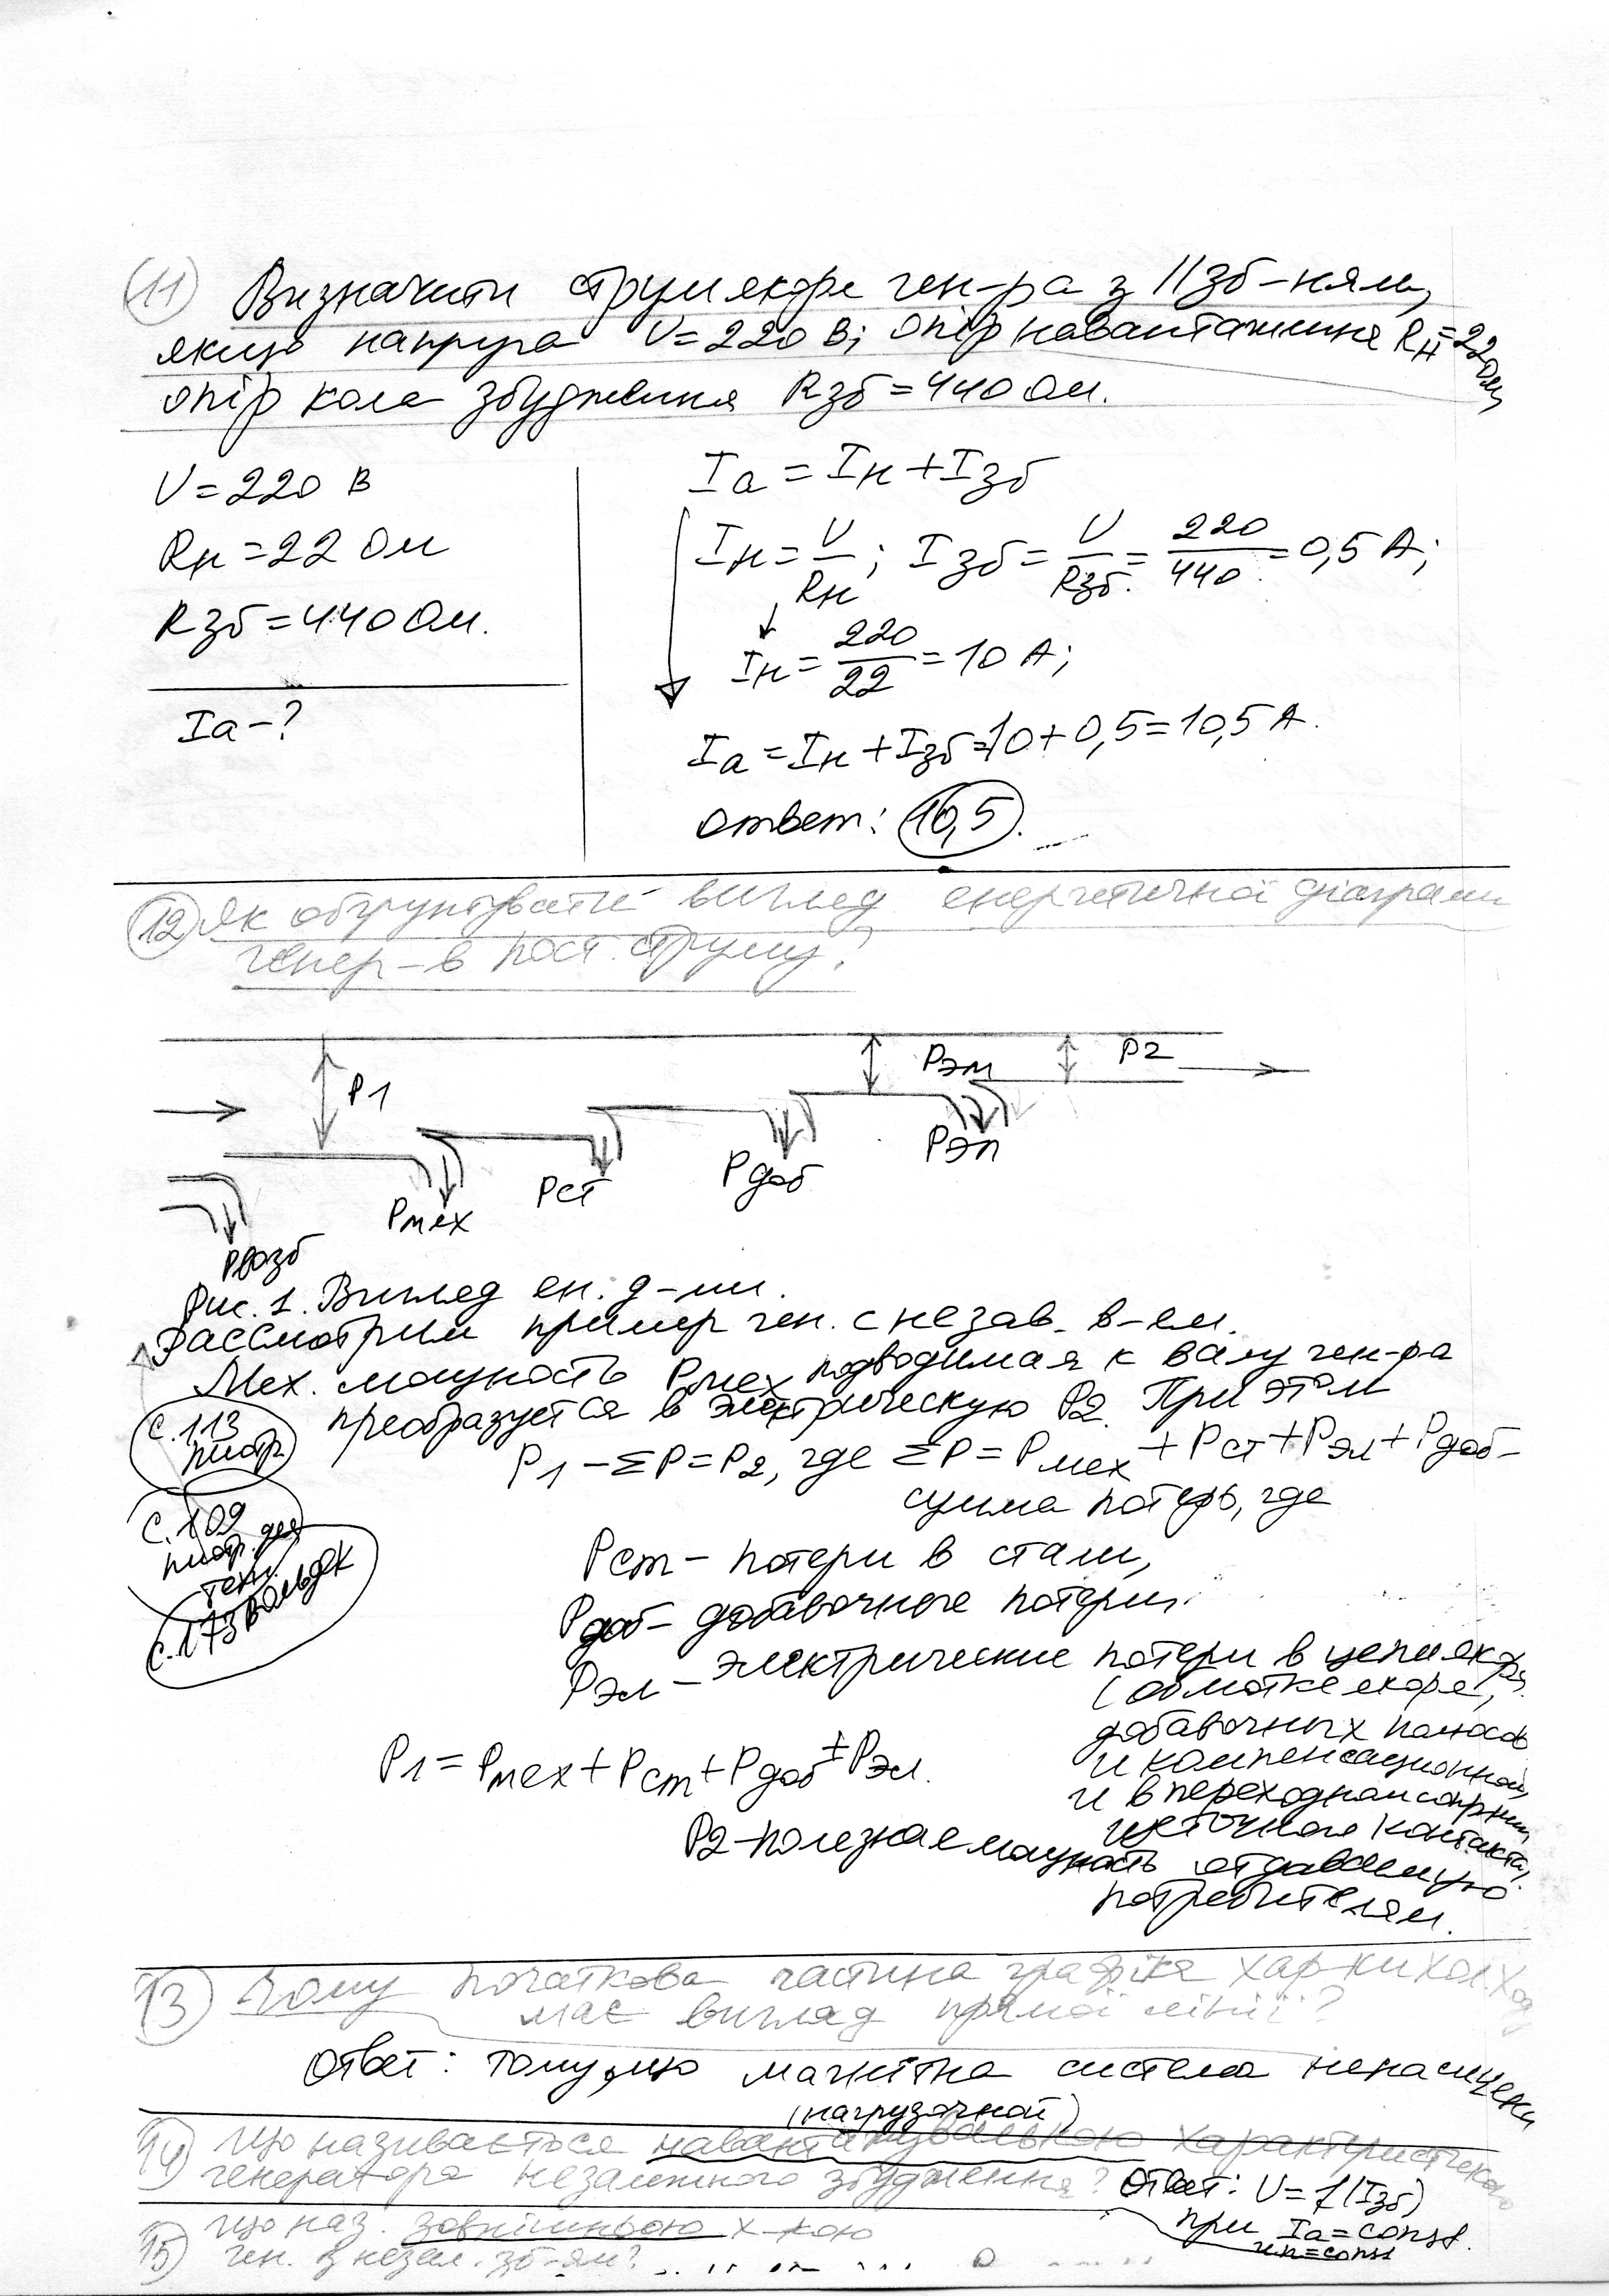 11) Визначити струм якоря ген-ра з || зб-ням,
якщо напруга U=220 В; опір навантаження Rн=22 Ом,
опір кола збудження Rзб=440 Ом.
U=220 В
Rн=22 Ом
Rзб=440 Ом.
Iа-?
Iа=Iн+Iзб
Iн=U/Rн; Iзб=U/Rзб.=220/440=0,5 А;
Iн=220/22=10 А;
Iа=Iн+Iзб=10+0,5=10,5 А.
ответ: 10,5.
12) Як обгрунтувати вигляд енергетичної діаграми
генер-в пост. струму?
P1
Pэм
P2
Pвозб
Pмех
Pст
Pдоб
Pэл
Рис. 1. Вигляд ен. д-ми.
Рассмотрим пример ген. с незав. в-ем.
Мех. мощность Pмех подводимая к валу ген-ра
преобразуется в электрическую P2. При этом
с.113
пиотр
P1-ΣP=P2, где ΣP=Pмех+Pст+Pэл+Pдоб-
сумма потерь, где
с.109
пиотр. для
техн.
с.173 Вольдек
Pст- потери в стали,
Pдоб- добавочные потери,
Pэл- электрические потери в цепи якоря
(обмотке якоря,
добавочных полюсов
и компенсационной,
и в переходном сопр-нии
щеточного контакта).
P1=Pмех+Pст+Pдоб±Pэл.
P2-полезная мощность отдаваемую
потребителям.
13) Чому початкова частина графіка хар-ки хол. ход
має вигляд прямої лінії?
Ответ: тому, що магнітна система ненасищена
(нагрузочной)
14) Що називається навантажувальною характеристикою
генератора незалежного збудження? Ответ: U=f(Iзб)
при Iа=const.
n=const
15) Що наз. зовнішньою х-кою
ген. з незал. зб-ям?